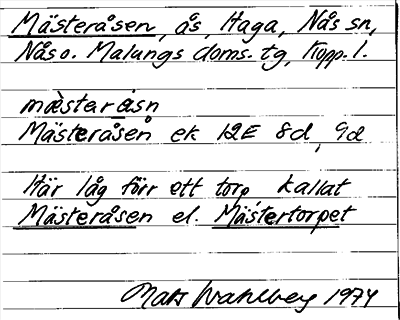 Mästeråsen, ås, Haga, Nås sn,
Nås o. Malungs doms. tg, Kopp. l.
mästaråsn
Mästeråsen ek 12E 8d, 9d
Här låg förr ett torp kallat
Mästeråsen el. Mästertorpet
Mats Wahlberg 1974